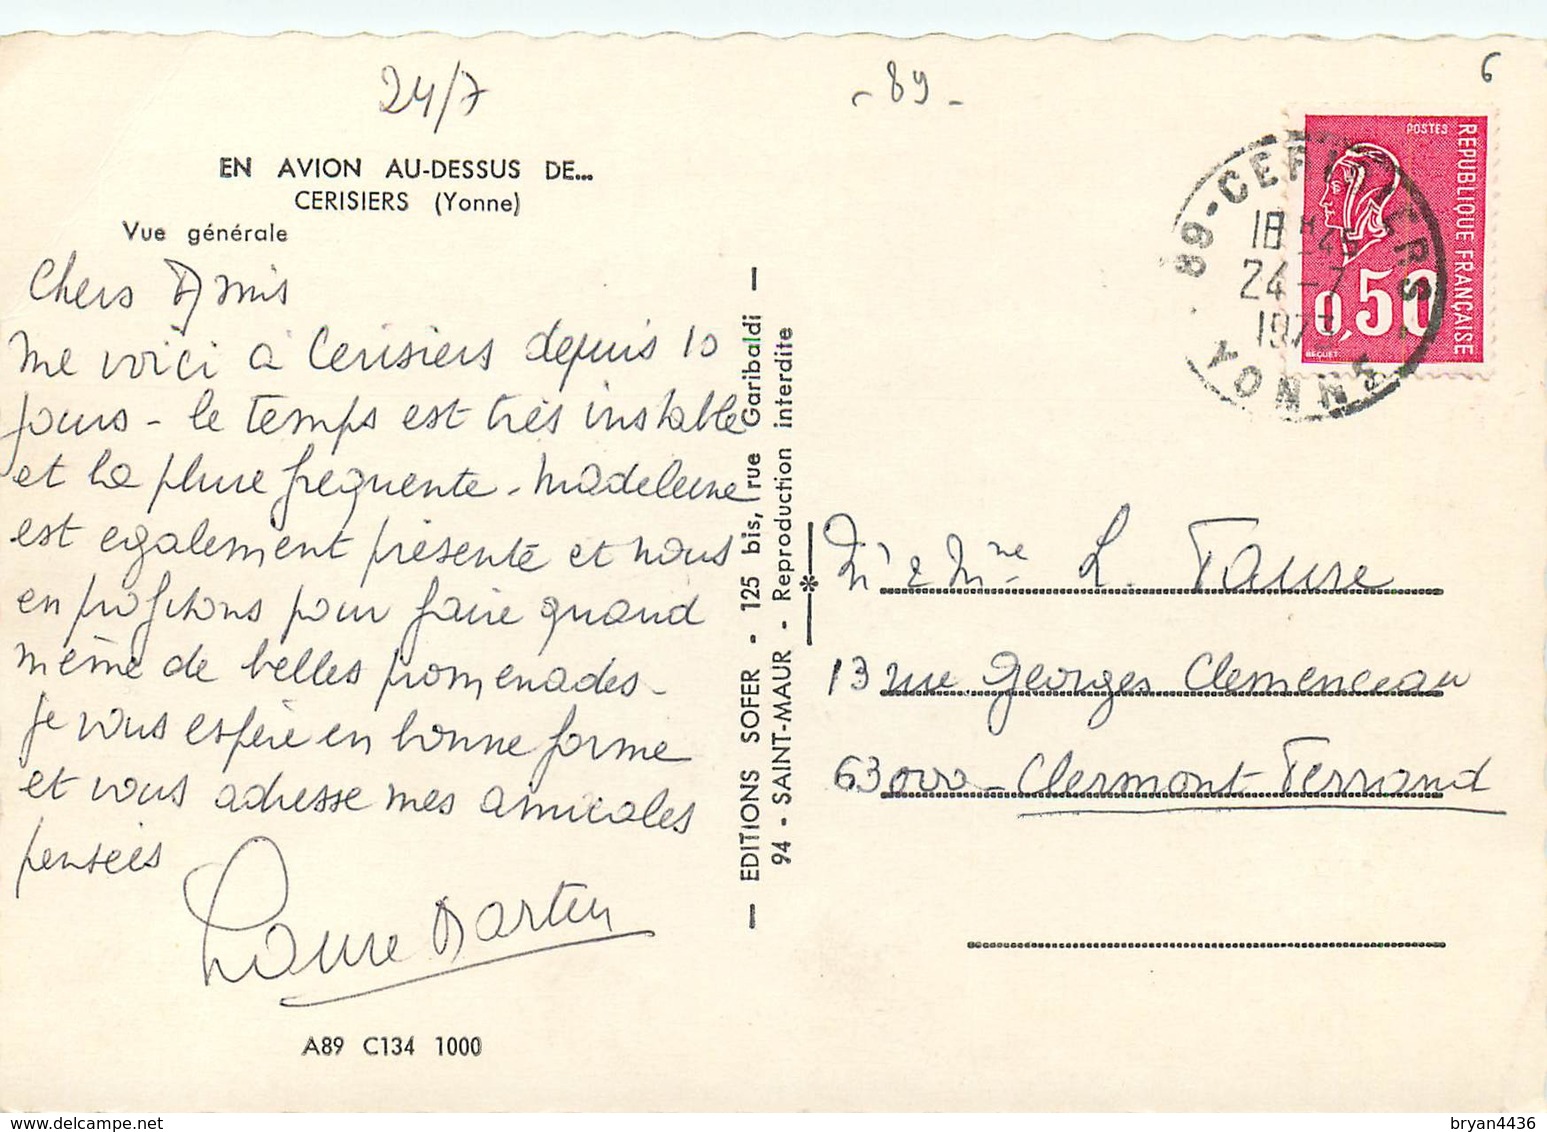 24/7
EN AVION AU-DESSUS DE...
CERISIERS (Yonne)
Vue générale
Chers Amis
me voici à Cerisiers depuis 10
jours - le temps est très instable
et la pluie fréquente - Madeleine
est egalement présente et nous
en profitons pour faire quand
même de belles promenades -
Je vous espère en bonne forme
et vous adresse mes amicales
pensées
Martin
A89 C134 1000
— EDITIONS SOFER - 125 bis, rue Garibaldi —
94 - SAINT-MAUR - Reproduction interdite
- 89 -
6
POSTES
REPUBLIQUE FRANÇAISE
0,50
BEQUET
89-CERISIERS
18H45
24-7
1973
YONNE
Mr & Mme L. Faure
13 rue Georges Clemenceau
63000 - Clermont-Ferrand
bryan4436